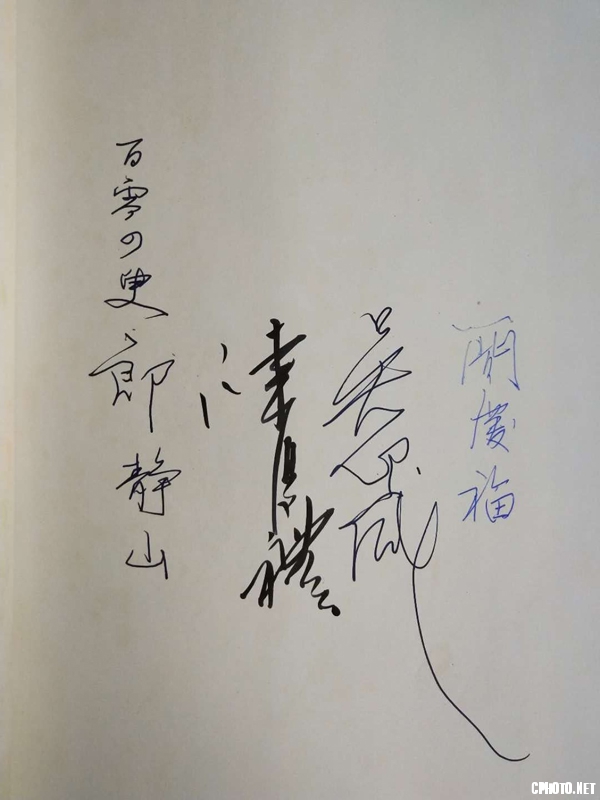 簡慶福
吴印咸
陳復禮
百零四叟 郎静山
CPHOTO.NET